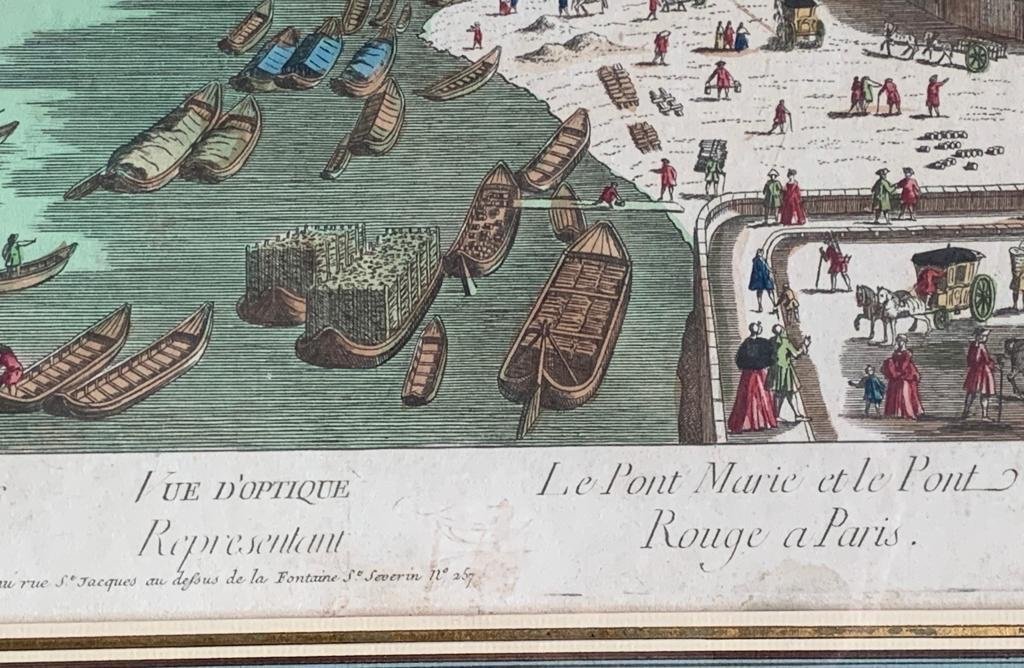 VUE D'OPTIQUE
Representant
Le Pont Marie et le Pont
Rouge a Paris.
rue St. Jacques au dessus de la Fontaine St. Severin No 257